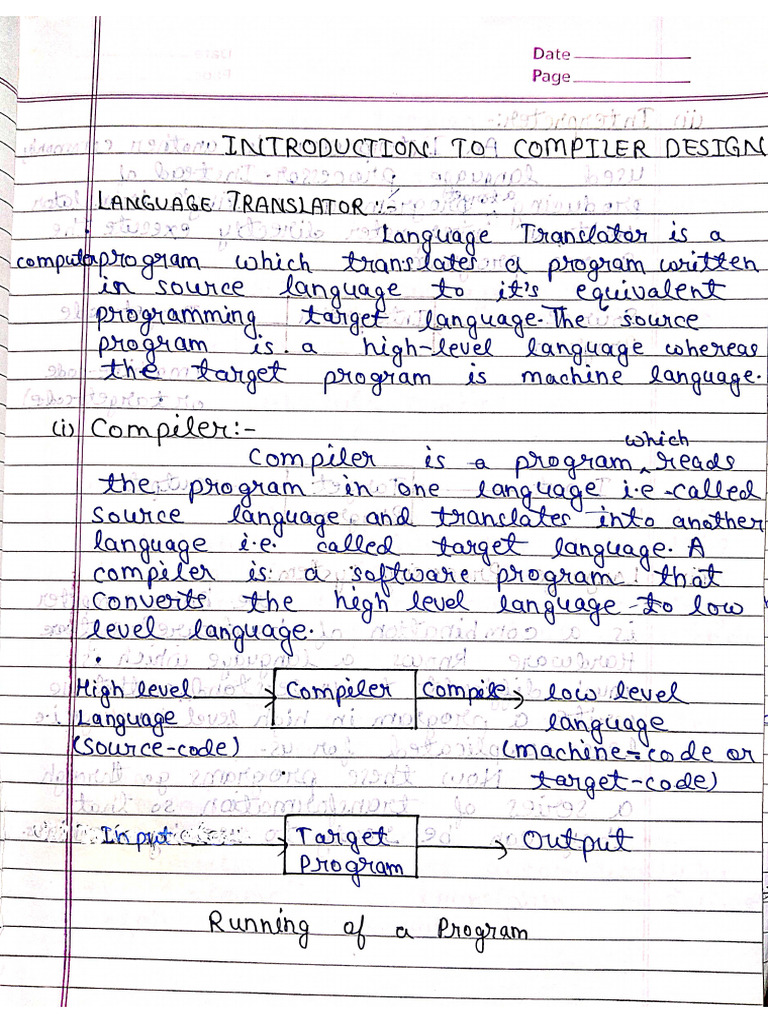 Date
Page
INTRODUCTION TO COMPILER DESIGN
LANGUAGE TRANSLATOR :-
Language Translator is a
computer program which translates a program written
in source language to it's equivalent
programming target language. The source
program is a high-level language whereas
the target program is machine language.
(i) Compiler:-
which
Compiler is a program ^ reads
the program in one language i.e -called
source language and translates into another
language i.e. called target language. A
compiler is a software program that
converts the high level language to low
level language.
High level Compiler Compile low level
Language language
(source-code) (machine-code or
target-code)
Input Target Output
Program
Running of a Program